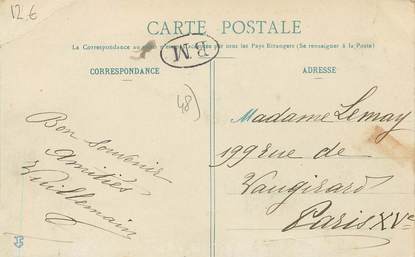 12 €
CARTE POSTALE
La Correspondance au recto n'est pas acceptée par tous les Pays Etrangers (Se renseigner à la Poste)
BM
CORRESPONDANCE
ADRESSE
48)
Bon Souvenir
Amitiés
Vuillemain
Madame Lemay
199 rue de
Vaugirard
Paris XVe